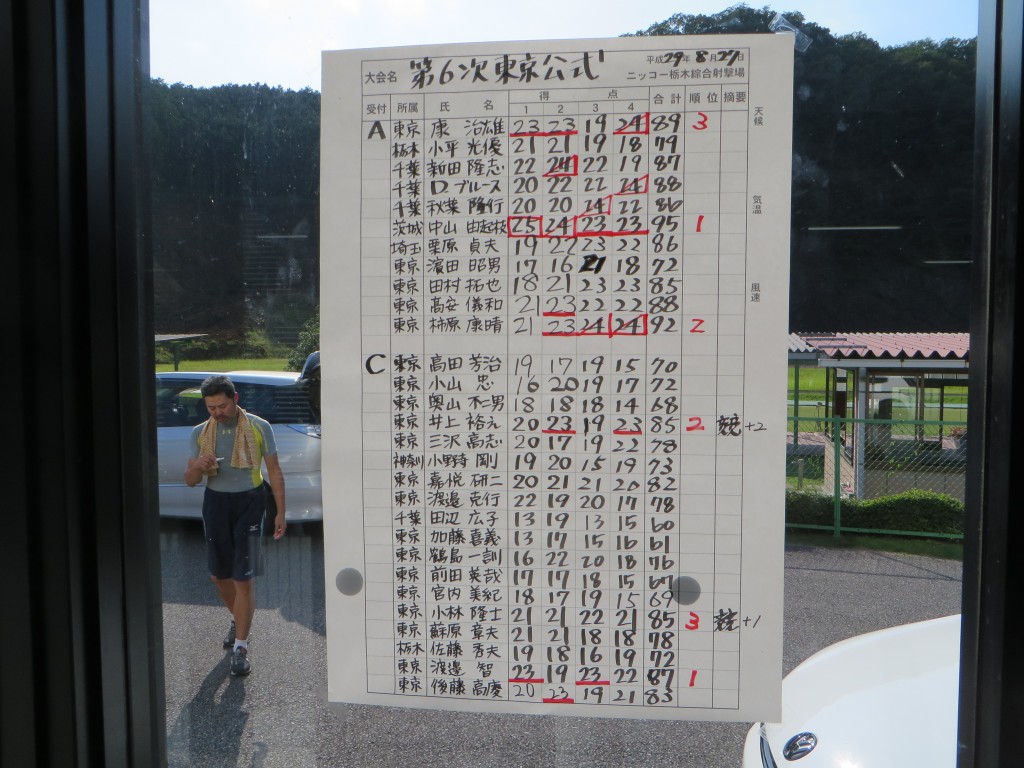 平成 29 年 8 月 27 日
大会名 第6次東京公式 ニッコー栃木綜合射撃場
受付 所属 氏 名 得 点 合計 順位 摘要
1 2 3 4
天候
A 東京 康 治雄 23 23 19 24 89 3
栃木 小平 光優 21 21 19 18 79
千葉 新田 隆志 22 24 22 19 87
千葉 D.ブルース 20 22 22 24 88
気温
千葉 秋葉 隆行 20 20 24 22 86
茨城 中山 由起枝 25 24 23 23 95 1
埼玉 栗原 貞夫 19 22 23 22 86
東京 濱田 昭男 17 16 21 18 72
風速
東京 田村 拓也 18 21 23 23 85
東京 高安 儀和 21 23 22 22 88
東京 柿原 康晴 21 23 24 24 92 2
C 東京 高田 芳治 19 17 19 15 70
東京 小山 忠 16 20 19 17 72
東京 奥山 不二男 18 18 18 14 68
東京 井上 裕え 20 23 19 23 85 2 競+2
東京 三沢 高志 20 17 19 22 78
神奈川 小野寺 剛 19 20 15 19 73
東京 嘉悦 研二 20 21 21 20 82
東京 渡邉 克行 22 19 20 17 78
千葉 田辺 広子 13 19 13 15 60
東京 加藤 喜義 13 17 15 16 61
東京 鶴島 一訓 16 22 20 18 76
東京 前田 英哉 17 17 18 15 67
東京 宮内 美紀 18 17 19 15 69
東京 小林 隆士 21 21 22 21 85 3 競+1
東京 蘇原 章夫 21 21 18 18 78
栃木 佐藤 秀夫 19 18 16 19 72
東京 渡邉 智 23 19 23 22 87 1
東京 後藤 高慶 20 23 19 21 83